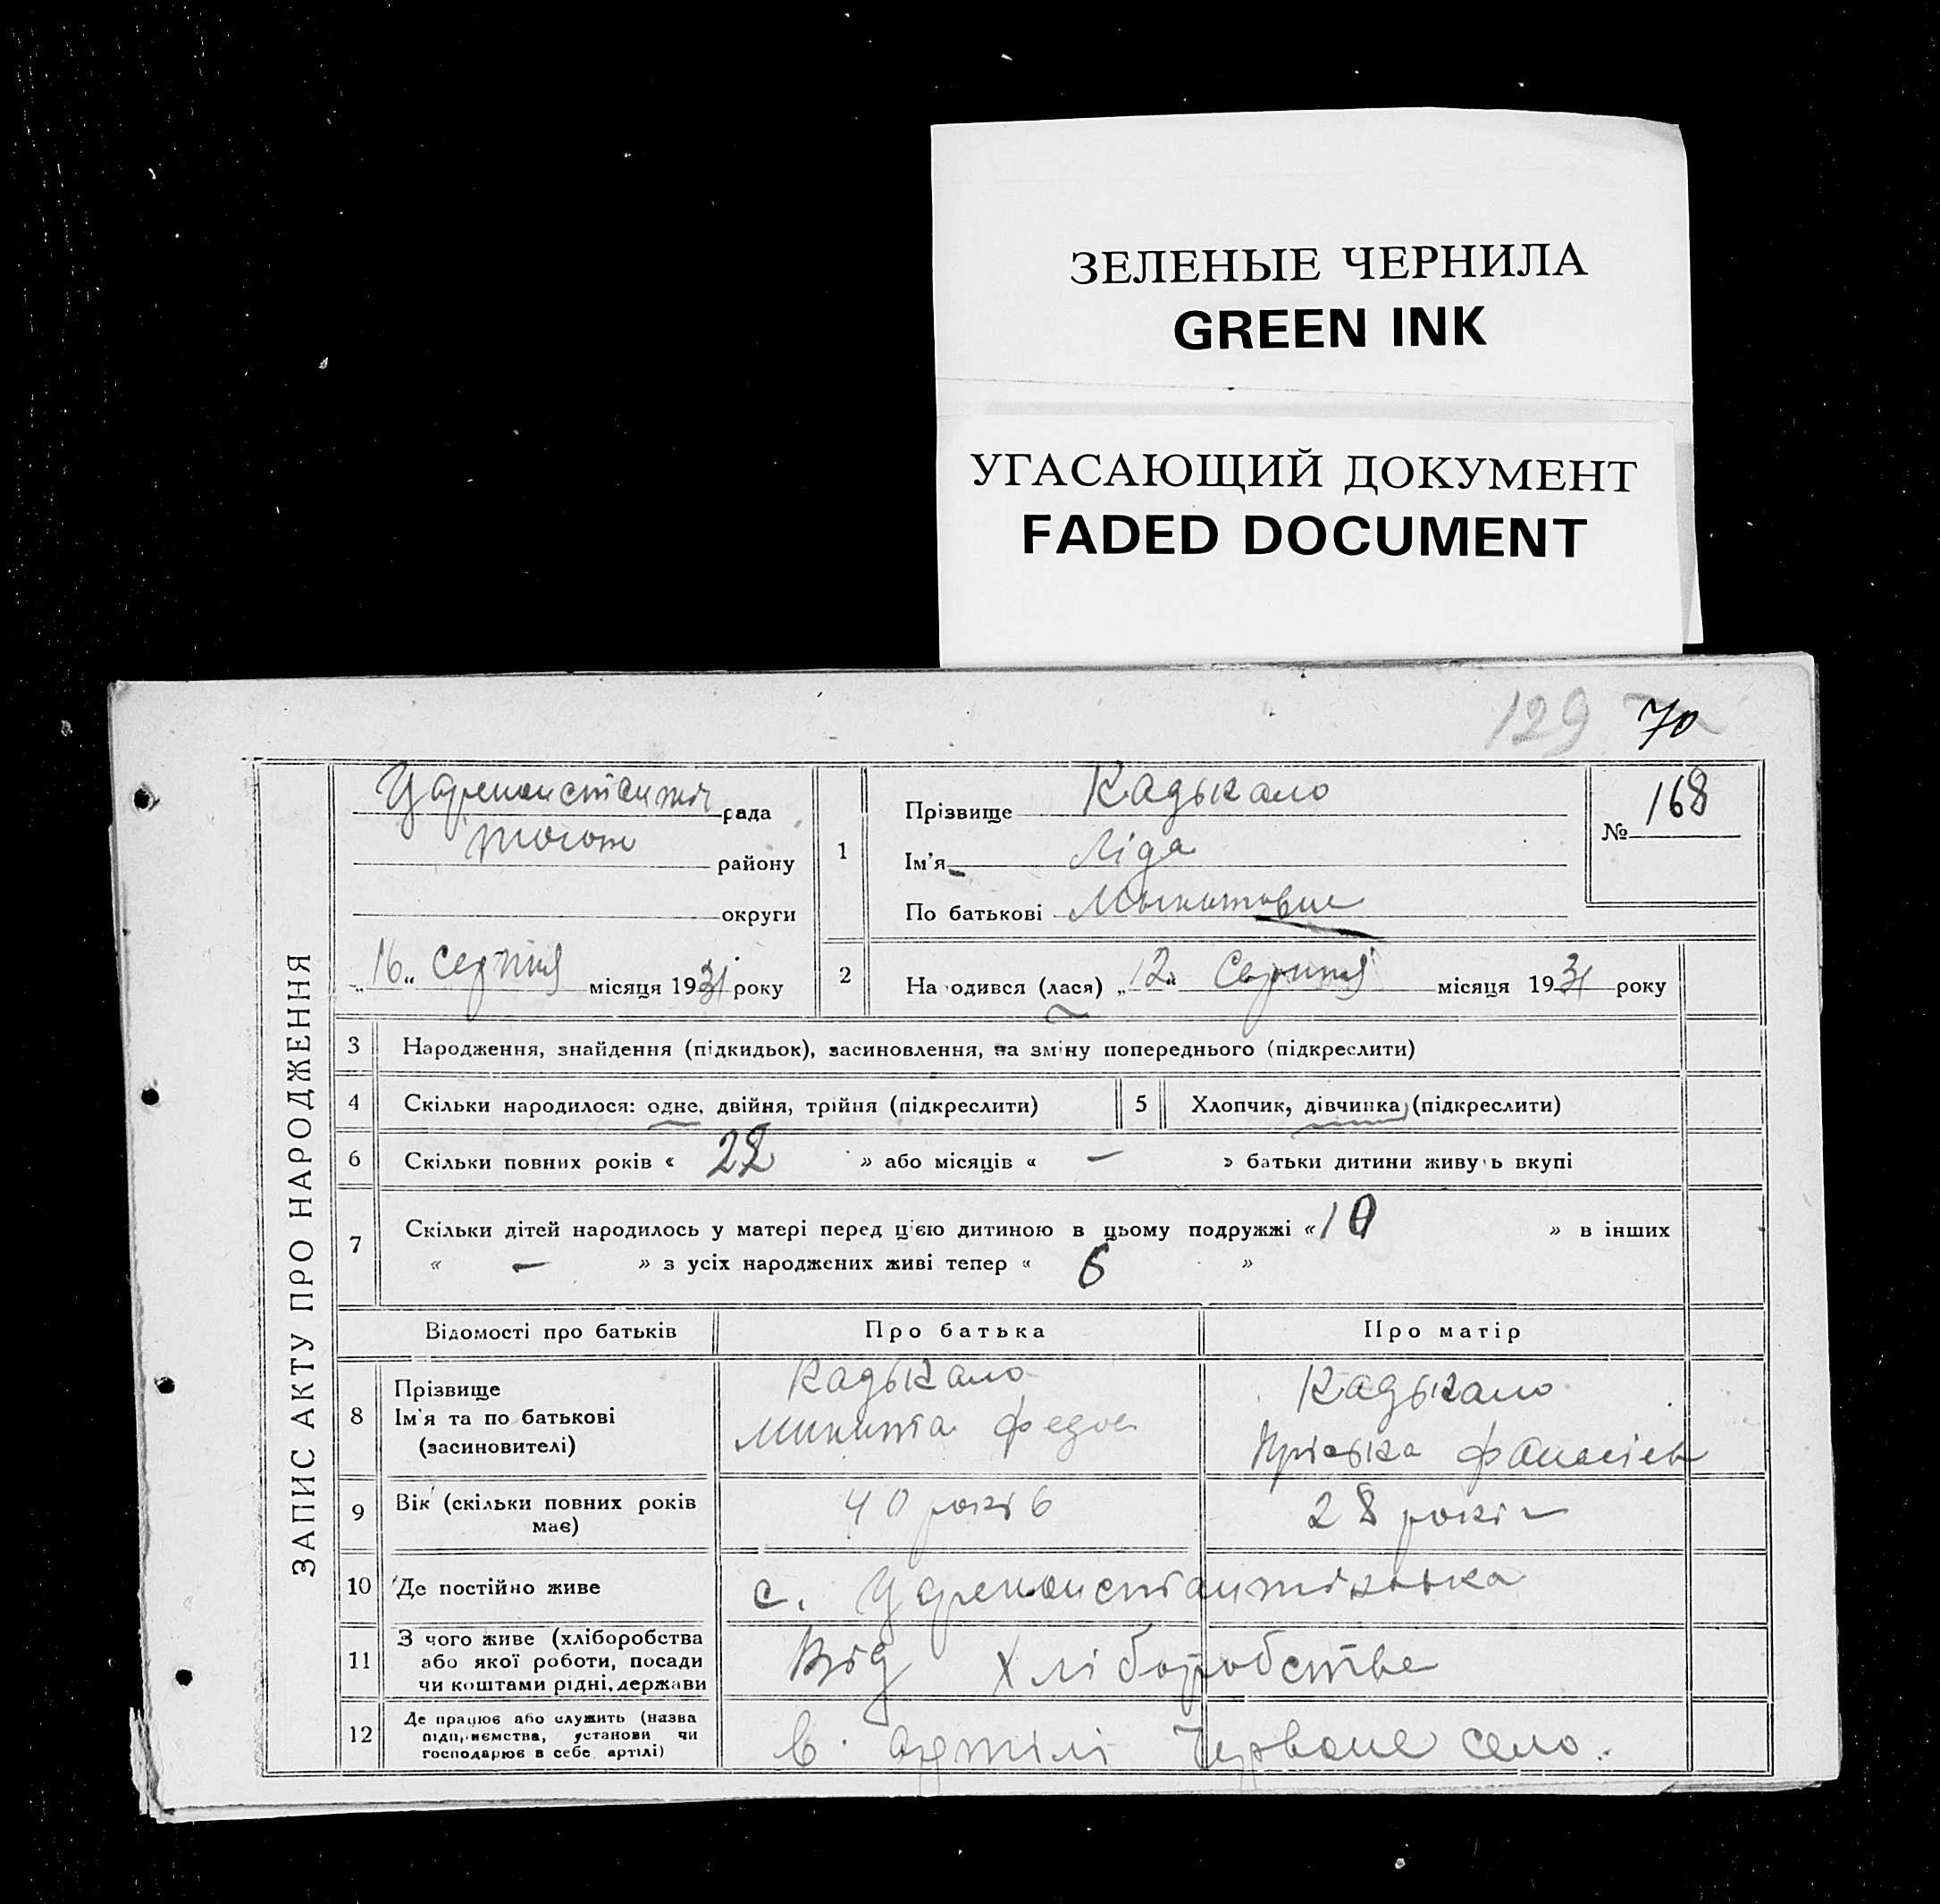 ЗЕЛЕНЫЕ ЧЕРНИЛА
GREEN INK
УГАСАЮЩИЙ ДОКУМЕНТ
FADED DOCUMENT
129 70
ЗАПИС АКТУ ПРО НАРОДЖЕННЯ
рада
району
округи
„16“ серпня місяця 1931 року
1
Прізвище Кадыкало
Ім'я Ліда
По батькові
№ 168
2 На одився (лася) „12“ Серпня місяця 1931 року
3 Народження, знайдення (підкидьок), засиновлення, на зміну попереднього (підкреслити)
4 Скільки народилося: одне, двійня, трійня (підкреслити) 5 Хлопчик, дівчинка (підкреслити)
6 Скільки повних років « 22 » або місяців « — » батьки дитини живуть вкупі
7 Скільки дітей народилось у матері перед цією дитиною в цьому подружжі «10 » в інших
« — » з усіх народжених живі тепер « 6 »
Відомості про батьків Про батька Про матір
8 Прізвище
Ім'я та по батькові
(засиновителі)
Кадыкало
Микита Федов
Кадыкало
Пріська Фанасіев
9 Вік (скільки повних років
має)
40 років
28 років
10 Де постійно живе с. Цареконстантінівка
11 З чого живе (хліборобства
або якої роботи, посади
чи коштами рідні, держави
Від хліборобства
12 Де працює або служить (назва
підприємства, установи чи
господарює в себе артілі)
в артілі Червоне село.